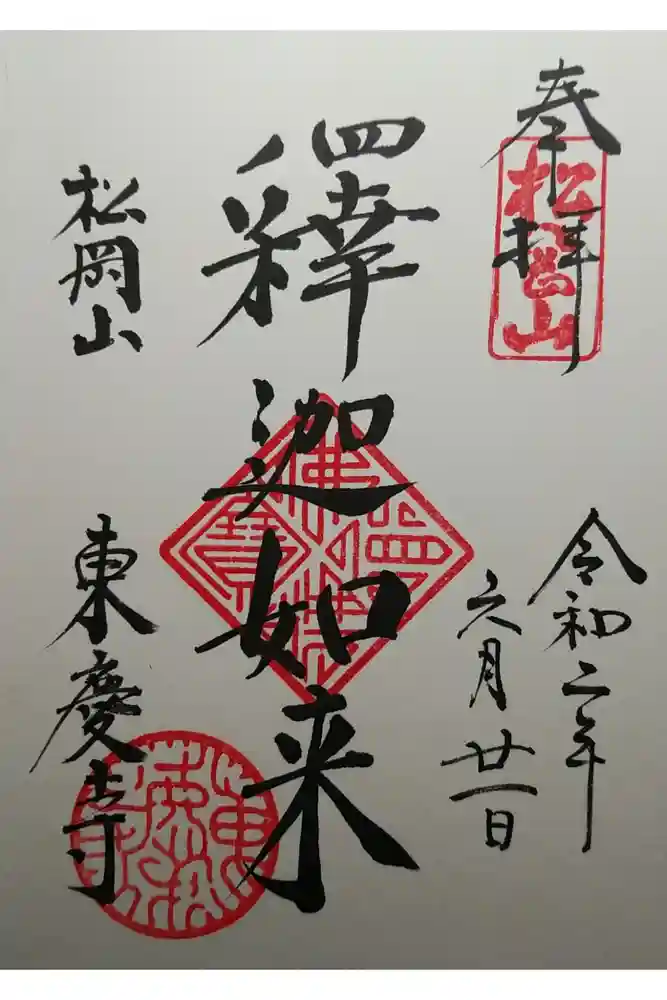 奉拝
松岡山
令和二年
六月廿一日
釋迦如来
佛法僧寶
松岡山
東慶寺
東慶寺